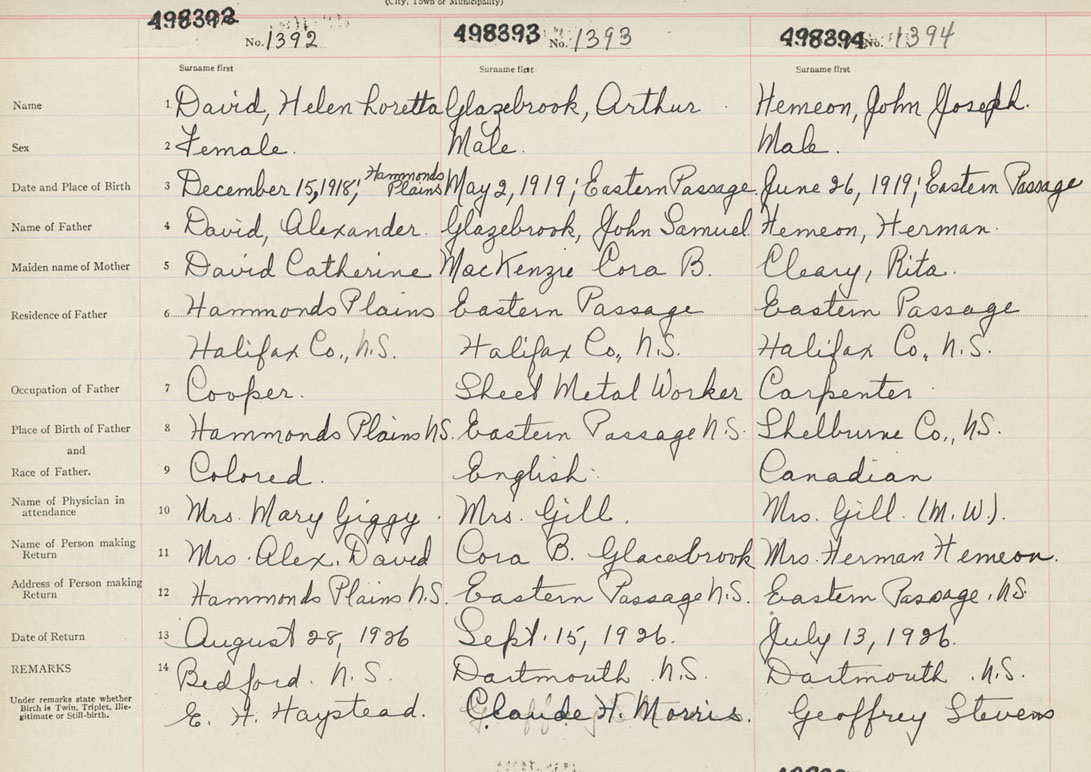 (City, Town or Municipality)
498392 498393 498394
No. 1392 No. 1393 No. 1394
Surname first Surname first Surname first
Name 1 David, Helen Loretta Glazebrook, Arthur Hemeon, John Joseph.
Sex 2 Female. Male. Male.
Date and Place of Birth 3 December 15, 1918; Hammonds Plains May 2, 1919; Eastern Passage. June 26, 1919; Eastern Passage
Name of Father 4 David, Alexander. Glazebrook, John Samuel Hemeon, Herman.
Maiden name of Mother 5 David Catherine MacKenzie Cora B. Cleary, Rita.
Residence of Father 6 Hammonds Plains Eastern Passage Eastern Passage
Halifax Co., N.S. Halifax Co., N.S. Halifax Co., N.S.
Occupation of Father 7 Cooper. Sheet Metal Worker Carpenter
Place of Birth of Father 8 Hammonds Plains N.S. Eastern Passage N.S. Shelburne Co., N.S.
and
Race of Father. 9 Colored. English. Canadian
Name of Physician in attendance 10 Mrs. Mary Giggy. Mrs. Gill. Mrs. Gill (M.W.).
Name of Person making Return 11 Mrs. Alex. David Cora B. Glacebrook Mrs. Herman Hemeon.
Address of Person making Return 12 Hammonds Plains N.S. Eastern Passage N.S. Eastern Passage. N.S.
Date of Return 13 August 28, 1926 Sept. 15, 1926. July 13, 1926.
REMARKS 14 Bedford. N.S. Dartmouth N.S. Dartmouth. N.S.
Under remarks state whether Birth is Twin, Triplet, Illegitimate or Still-birth. E. H. Haystead. Claude H. Morris. Geoffrey Stevens